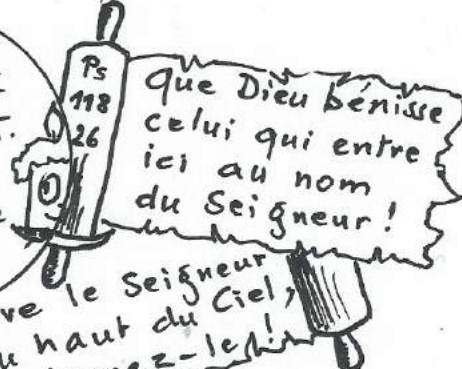 Ps
118
26
que Dieu bénisse
celui qui entre
ici au nom
du Seigneur !
le Seigneur
haut du Ciel,